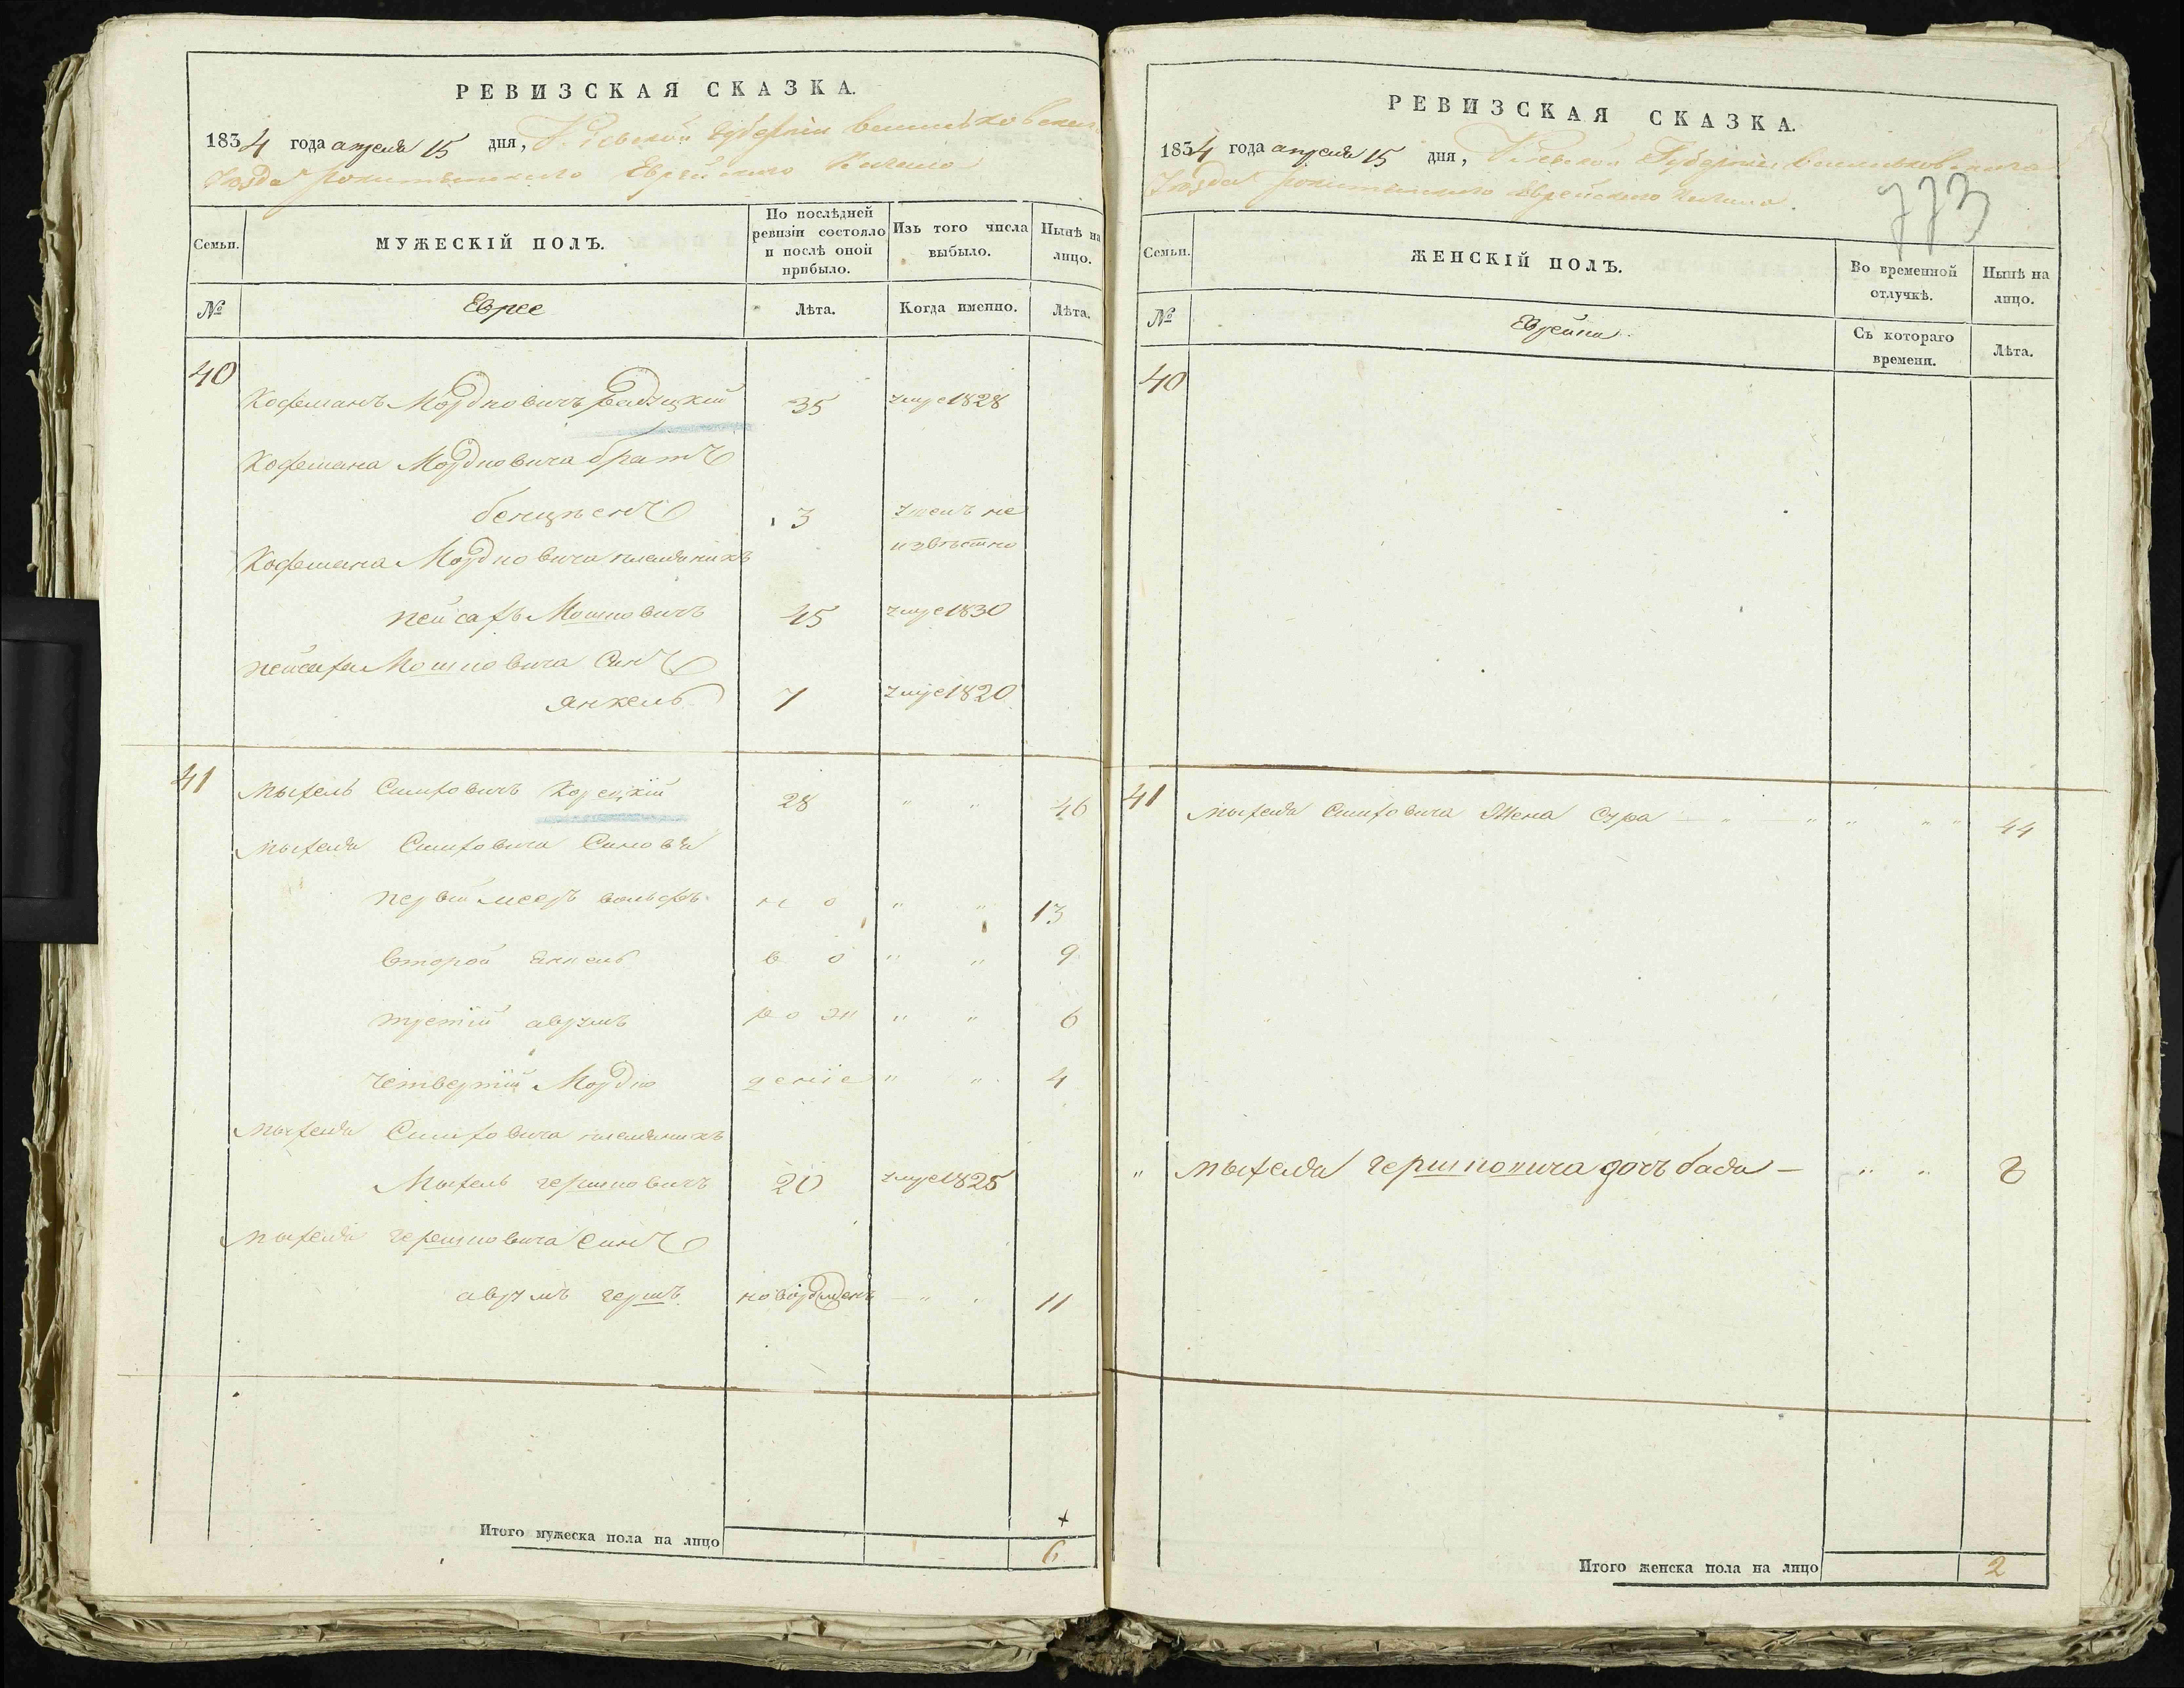 РЕВИЗСКАЯ СКАЗКА.
1834 года апреля 15 дня, Киевской губернии васильковского
уезда рокитянского Еврейского Кагала
Семьи.
МУЖЕСКІЙ ПОЛЪ.
По послѣдней ревизіи состояло и послѣ оной прибыло.
Изъ того числа выбыло.
Нынѣ на лицо.
№
Евреє
Лѣта.
Когда именно.
Лѣта.
40
Кофманъ Мордковичъ 35 умре 1828
Кофмана Мордковича братъ
бенционъ 3 неизвѣстно
Кофмана Мордковича племяникъ
пейсахъ Мошковичъ 45 умре 1830
пейсаха Мошковича синъ
янкель 7 умре 1820
41
Мыхель Симховичъ Корецкій 28 " " 46
Мыхеля Симховича Синовя
первій мееръ вольфъ но " " 13
второй янкель во " " 9
третій аврумъ рож " " 6
четвертій Мордко деніе " " 4
Мыхеля Симховича племяникъ
Мыхель гершковичъ 20 умре 1825
Мыхеля гершковича синъ
аврумъ гершъ новорожденъ " " 11
Итого мужеска пола на лицо 6
РЕВИЗСКАЯ СКАЗКА.
1834 года апреля 15 дня, Киевской Губернии васильковского
Уезда рокитянского Еврейского Кагала.
773
Семьи.
ЖЕНСКІЙ ПОЛЪ.
Во временной отлучкѣ.
Нынѣ на лицо.
№
Еврейки
Съ котораго времени.
Лѣта.
40
41 Мыхеля Симховича Жена Сура " " " " 44
" Мыхеля гершковича дочъ бася " " 8
Итого женска пола на лицо 2